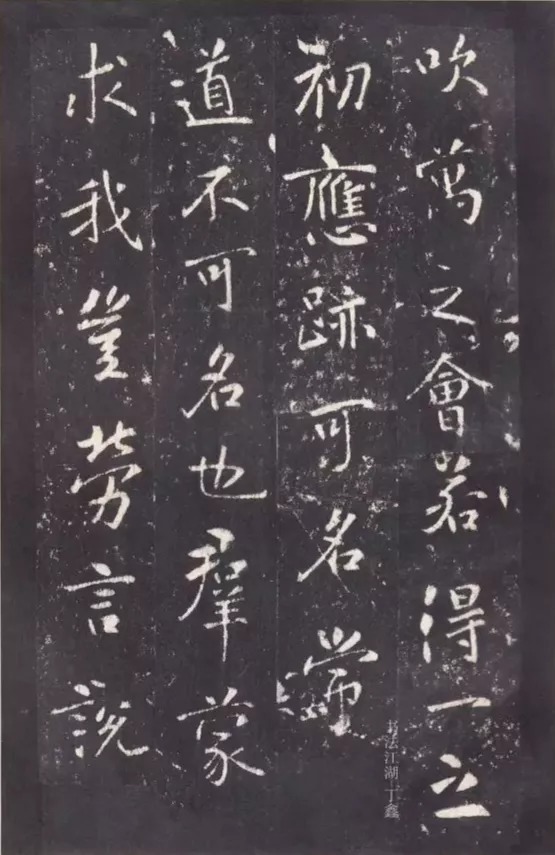 吹萬之會若得一之
初應跡可名常
道不可名也羣蒙
求我豈勞言說
书法江湖丁鑫